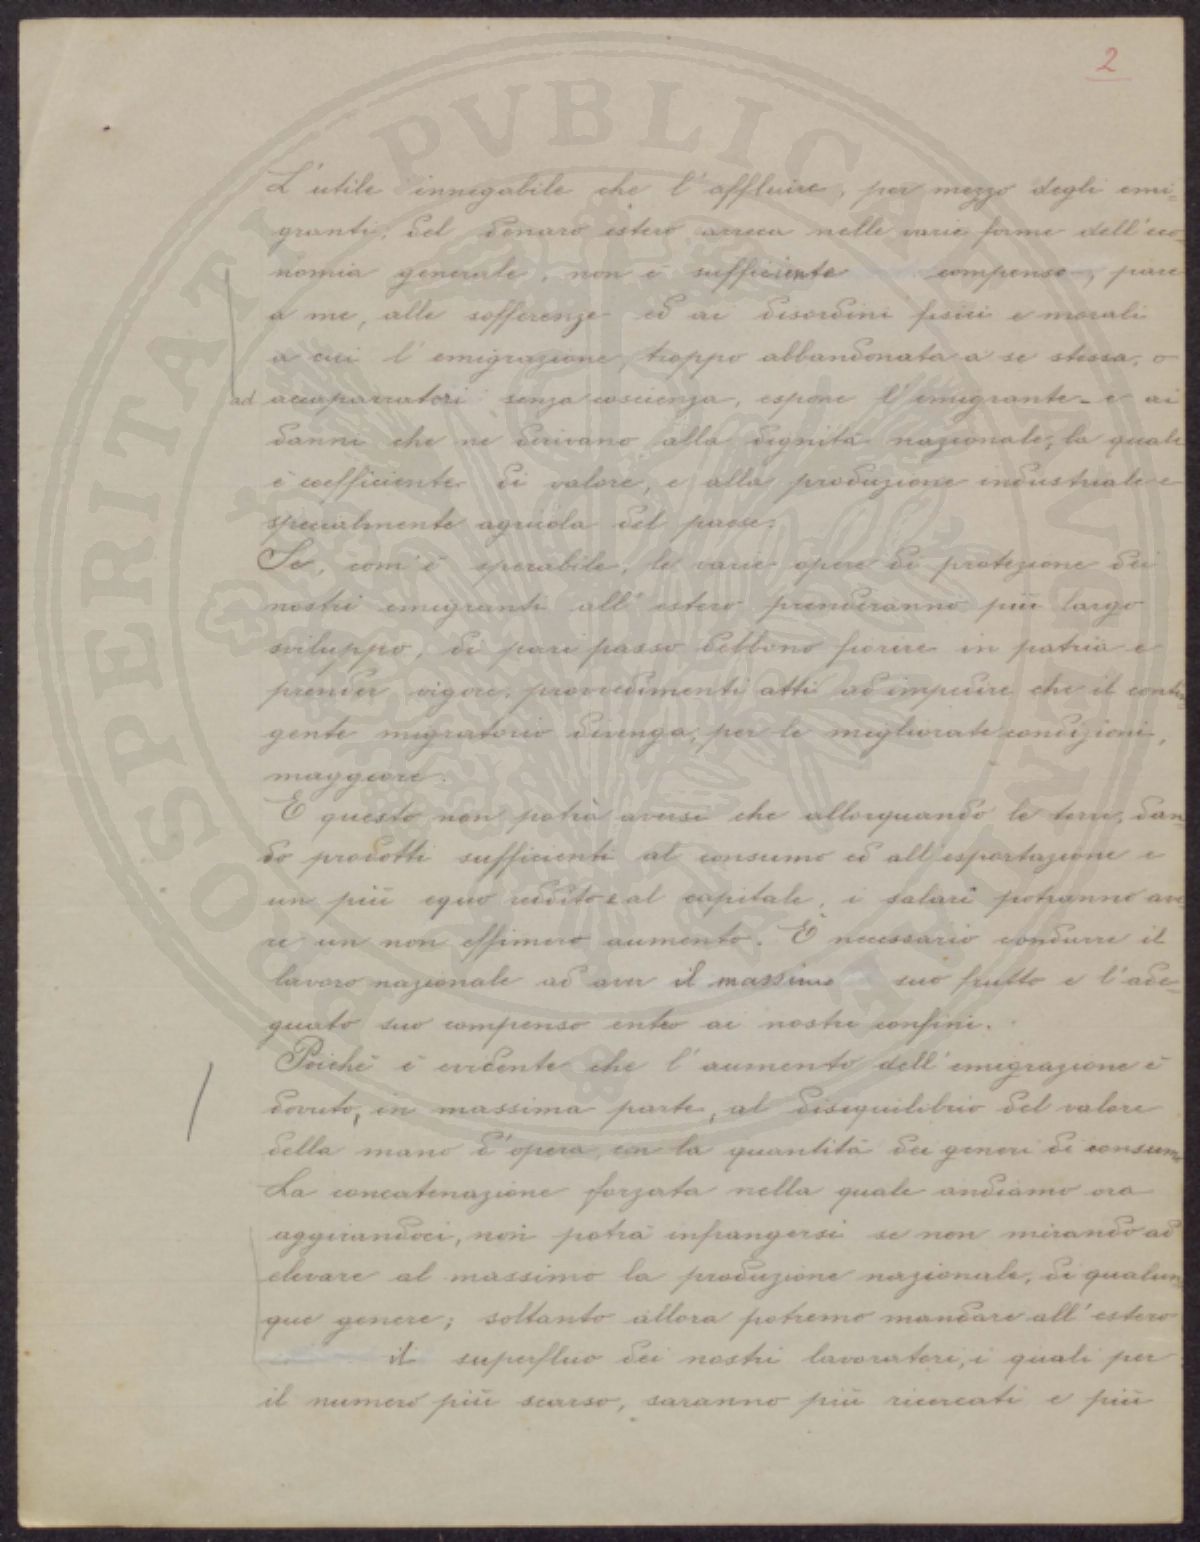 2
L'utile innegabile che l'affluire, per mezzo degli emi-
granti, del denaro estero arreca nelle varie forme dell'eco-
nomia generale, non è sufficiente compenso, pare
a me, alle sofferenze ed ai disordini fisici e morali
a cui l'emigrazione, troppo abbandonata a se stessa, o
ad accaparratori senza coscienza, espone l'emigrante - e ai
danni che ne derivano alla dignità nazionale, la quale
è coefficiente di valore, e alla produzione industriale e
specialmente agricola del paese.
Se, com'è sperabile, le varie opere di protezione dei
nostri emigranti all'estero prenderanno più largo
sviluppo, di pari passo debbono fiorire in patria e
prender vigore, provvedimenti atti ad impedire che il contin-
gente migratorio divenga, per le migliorate condizioni,
maggiore.
E questo non potrà aversi che allorquando le terre, dan-
do prodotti sufficienti al consumo ed all'esportazione e
un più equo reddito al capitale, i salari potranno ave
re un non effimero aumento. È necessario condurre il
lavoro nazionale ad aver il massimo suo frutto e l'ade-
guato suo compenso entro ai nostri confini.
Poichè è evidente che l'aumento dell'emigrazione è
dovuto, in massima parte, al disequilibrio del valore
della mano d'opera con la quantità dei generi di consumo
La concatenazione forzata nella quale andiamo ora
aggirandoci, non potrà infrangersi se non mirando ad
elevare al massimo la produzione nazionale, di qualun-
que genere; soltanto allora potremo mandare all'estero
il superfluo dei nostri lavoratori, i quali per
il numero più scarso, saranno più ricercati e più
PROSPERITATI PVBLICAE